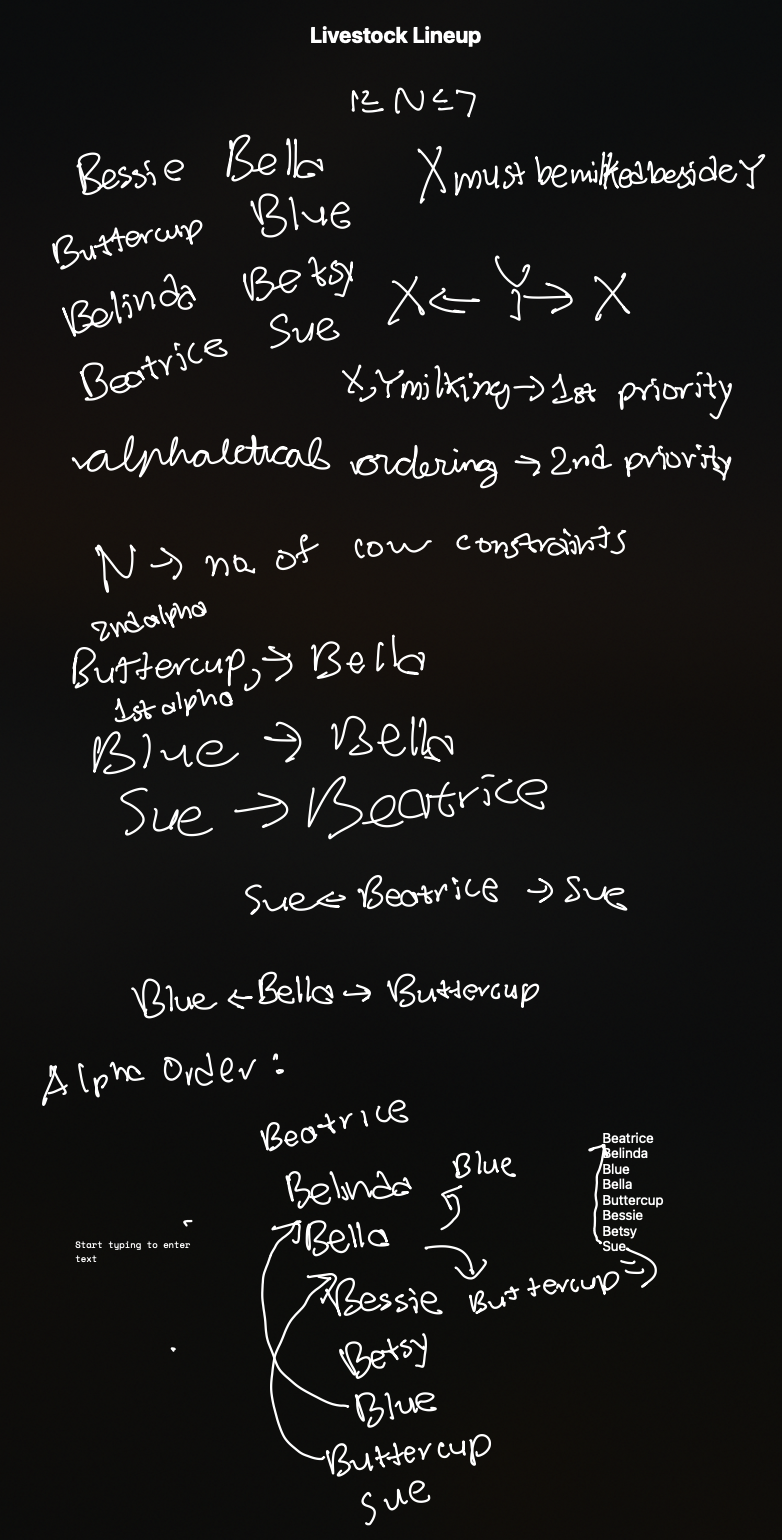 Livestock Lineup
1 ≤ N ≤ 7
Bessie Bella
X must be milked beside Y
Buttercup Blue
Belinda Betsy
X ← Y → X
Beatrice Sue
X,Y milking → 1st priority
alphabetical ordering → 2nd priority
N → no. of cow constraints
2nd alpha
Buttercup, → Bella
1st alpha
Blue → Bella
Sue → Beatrice
Sue ← Beatrice → Sue
Blue ← Bella → Buttercup
Alpha Order:
Beatrice
Belinda
Blue
Bella
Bessie
Buttercup
Betsy
Blue
Buttercup
Sue
Beatrice
Belinda
Blue
Bella
Buttercup
Bessie
Betsy
Sue
Start typing to enter
text